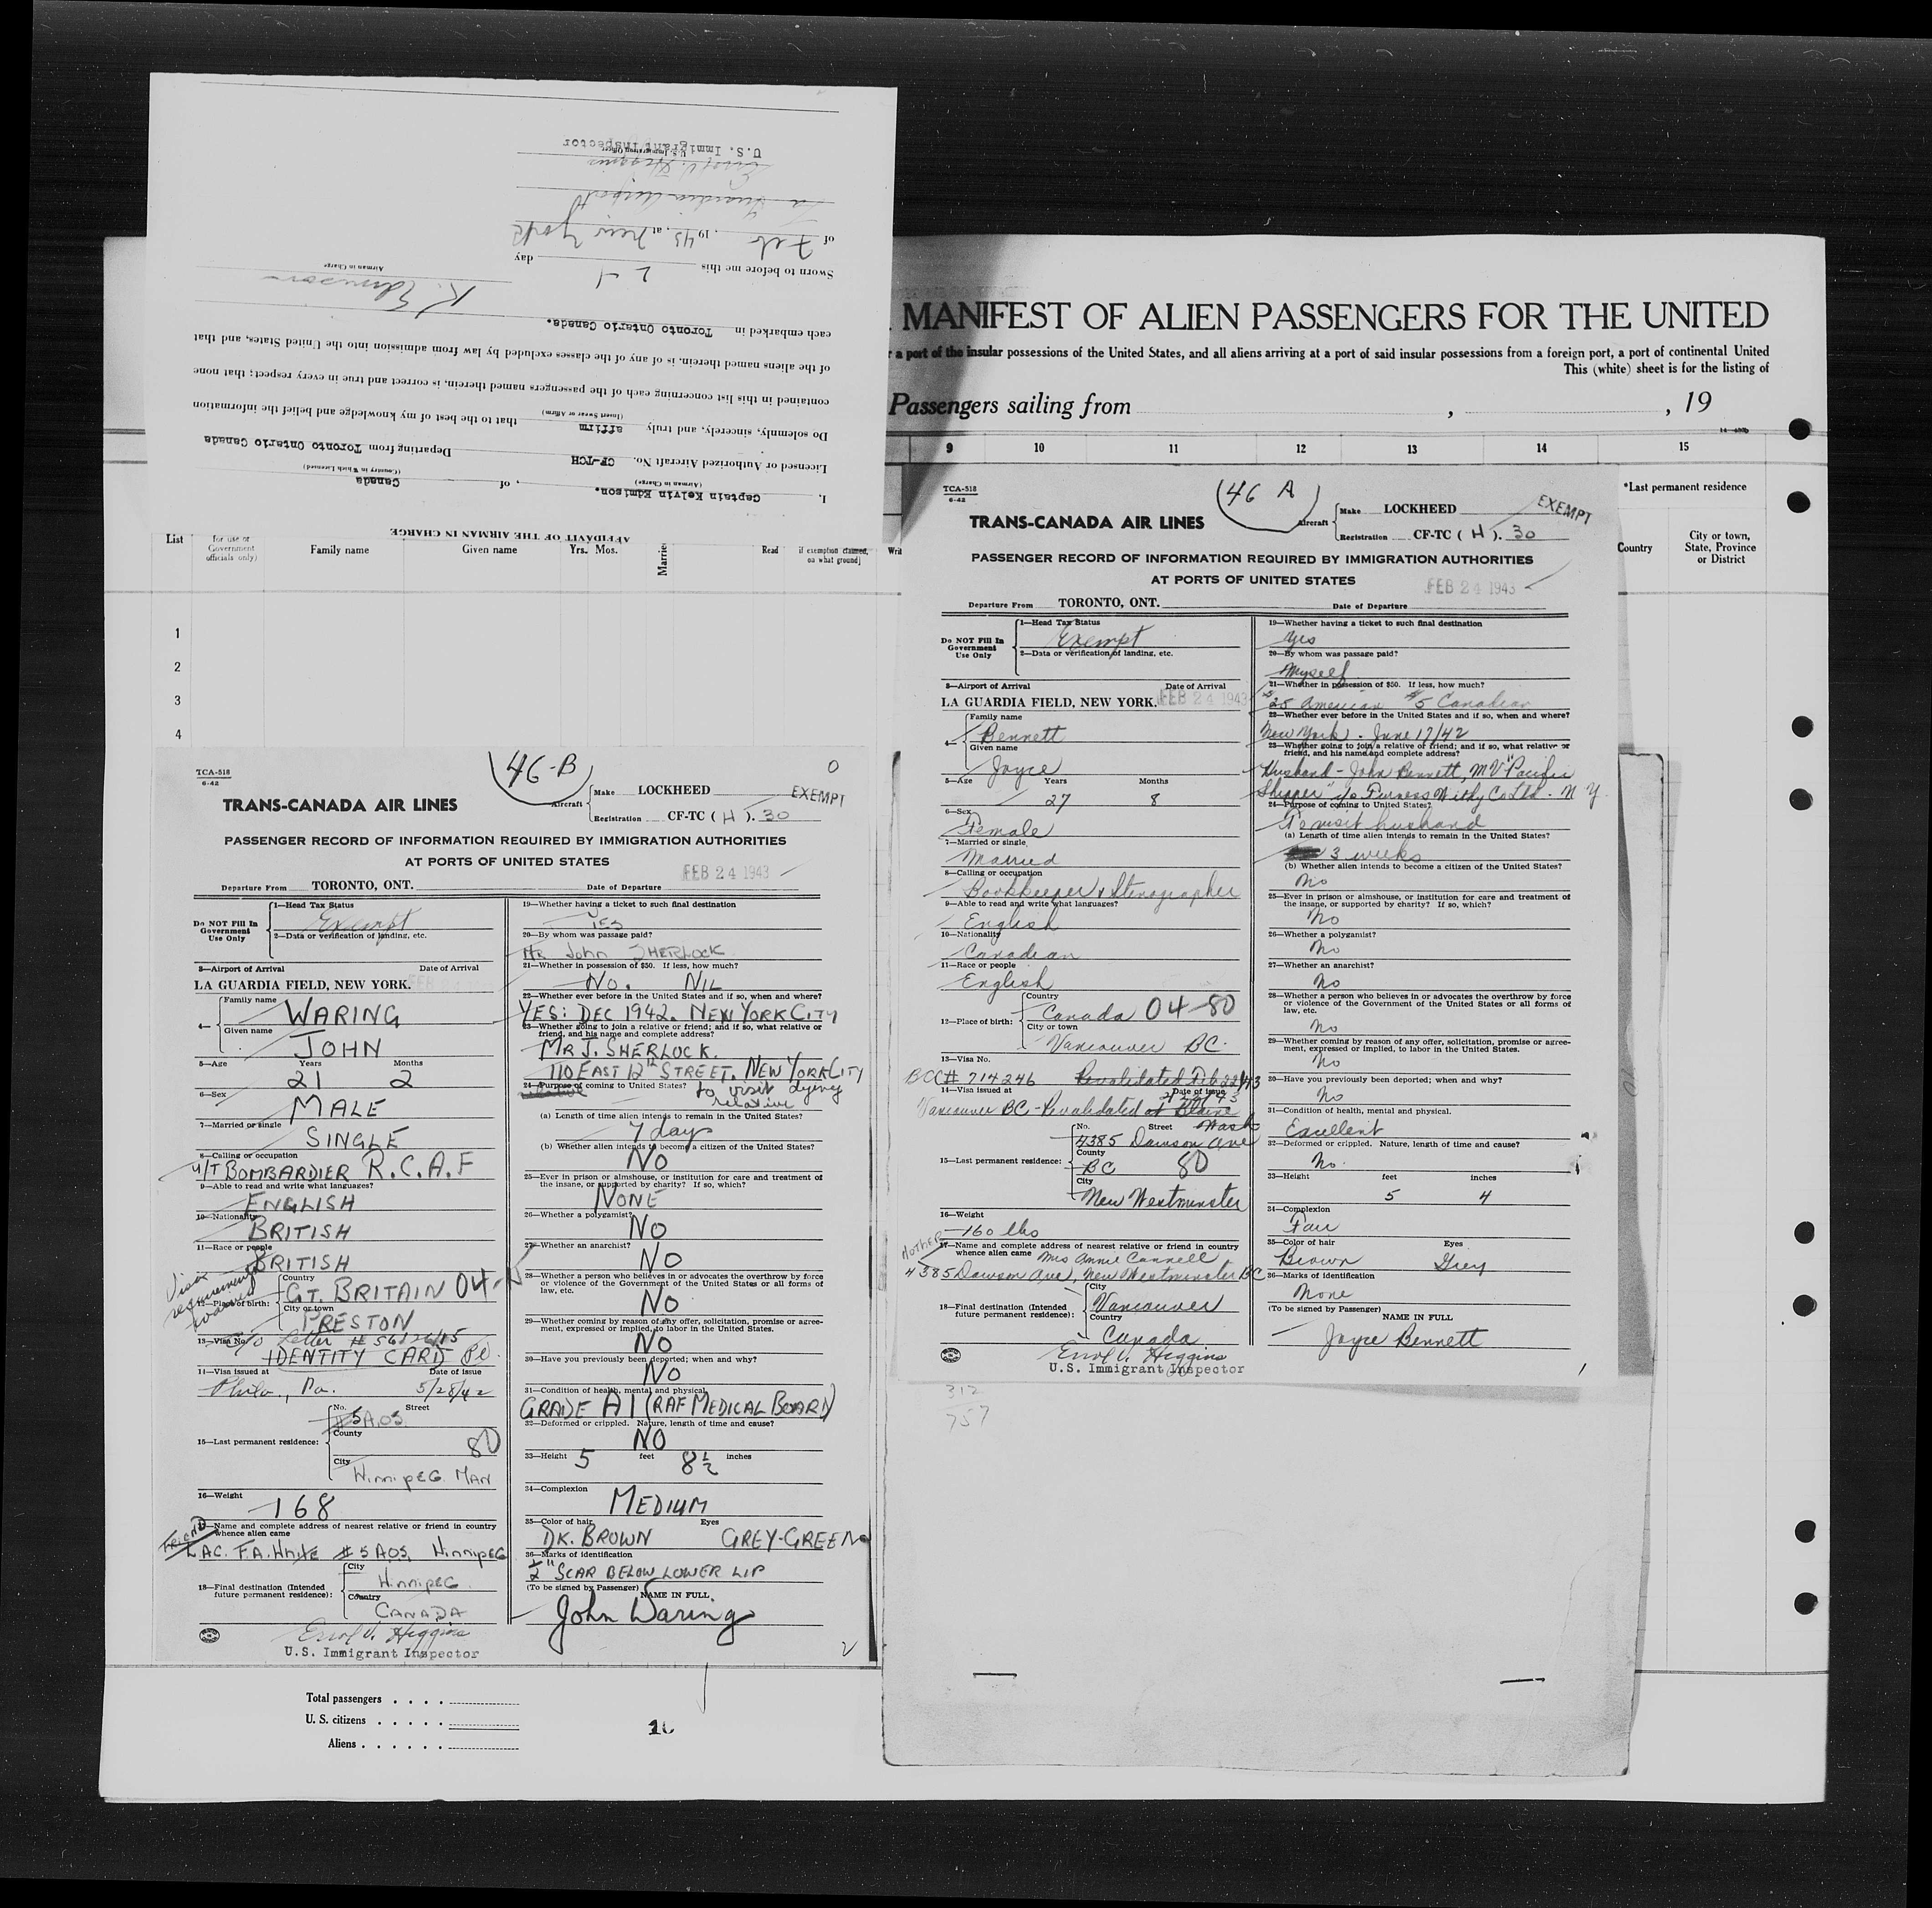 AFFIDAVIT OF THE AIRMAN IN CHARGE
I, Captain Kelvin Edmison. , of Canada
(Airman in Charge) (Country in Which Licensed)
Licensed or Authorized Aircraft No. CF-TCH Departing from Toronto Ontario Canada
Do solemnly, sincerely, and truly affirm that to the best of my knowledge and belief the information
(Insert Swear or Affirm)
contained in this list concerning each of the passengers named therein, is correct and true in every respect; that none
of the aliens named therein, is of any of the classes excluded by law from admission into the United States, and that
each embarked in Toronto Ontario Canada.
K. Edmison
Airman in Charge
Sworn to before me this 24 day
of Feb , 19 43, at New York
La Guardia Airport
Errol V. Higgins
U.S. Immigration Officer
U.S. Immigrant Inspector
MANIFEST OF ALIEN PASSENGERS FOR THE UNITED
r a port of the insular possessions of the United States, and all aliens arriving at a port of said insular possessions from a foreign port, a port of continental United
This (white) sheet is for the listing of
Passengers sailing from , , 19
9 10 11 12 13 14 15
*Last permanent residence
Country
City or town, State, Province or District
List
for use of Government officials only)
Family name
Given name
Yrs. Mos.
Married
Read
if exemption claimed, on what ground]
Writ
1
2
3
4
TCA-518
6-42
46-B
0
TRANS-CANADA AIR LINES
Aircraft
Make LOCKHEED
EXEMPT
Registration CF-TC ( H ). 30
PASSENGER RECORD OF INFORMATION REQUIRED BY IMMIGRATION AUTHORITIES
AT PORTS OF UNITED STATES
FEB 24 1943
Departure From TORONTO, ONT. Date of Departure
Do NOT Fill In Government Use Only
1—Head Tax Status
Exempt
2—Data or verification of landing, etc.
3—Airport of Arrival Date of Arrival
LA GUARDIA FIELD, NEW YORK.
4—
Family name
WARING
Given name
JOHN
5—Age Years Months
21 2
6—Sex
MALE
7—Married or single
SINGLE
8—Calling or occupation
U/T BOMBARDIER R.C.A.F
9—Able to read and write what languages?
ENGLISH
10—Nationality
BRITISH
11—Race or people
BRITISH
Visa requirements waived
12—Place of birth:
Country
GT. BRITAIN 04-
City or town
PRESTON
13—Visa No.
Letter # 56126/15
IDENTITY CARD
14—Visa issued at Date of issue
Phila., Pa. 5/28/42
15—Last permanent residence:
No. Street
#5 A.O.S.
County
80
City
WINNIPEG. MAN
16—Weight
168
FRIEND
17—Name and complete address of nearest relative or friend in country
whence alien came
LAC. F.A. White #5 AOS. WINNIPEG
18—Final destination (Intended future permanent residence):
City
WINNIPEG.
Country
CANADA
Errol V. Higgins
U.S. Immigrant Inspector
19—Whether having a ticket to such final destination
YES
20—By whom was passage paid?
Mr John SHERLOCK
21—Whether in possession of $50. If less, how much?
NO. NIL
22—Whether ever before in the United States and if so, when and where?
YES: DEC 1942. NEW YORK CITY
23—Whether going to join a relative or friend; and if so, what relative or
friend, and his name and complete address?
MR J. SHERLOCK.
110 EAST 12TH STREET. NEW YORK CITY
24—Purpose of coming to United States? to visit dying
relative
(a) Length of time alien intends to remain in the United States?
7 days
(b) Whether alien intends to become a citizen of the United States?
NO
25—Ever in prison or almshouse, or institution for care and treatment of
the insane, or supported by charity? If so, which?
NONE
26—Whether a polygamist?
NO
27—Whether an anarchist?
NO
28—Whether a person who believes in or advocates the overthrow by force
or violence of the Government of the United States or all forms of
law, etc.
NO
29—Whether coming by reason of any offer, solicitation, promise or agree-
ment, expressed or implied, to labor in the United States.
NO
30—Have you previously been deported; when and why?
NO
31—Condition of health, mental and physical.
GRADE A1 (RAF MEDICAL BOARD)
32—Deformed or crippled. Nature, length of time and cause?
NO
33—Height 5 feet 8½ inches
34—Complexion
MEDIUM
35—Color of hair Eyes
DK. BROWN GREY-GREEN
36—Marks of identification
½" SCAR BELOW LOWER LIP
(To be signed by Passenger)
NAME IN FULL
John Waring
2
Total passengers
U. S. citizens
Aliens
10
TCA-518
6-42
46 A
TRANS-CANADA AIR LINES
Aircraft
Make LOCKHEED
EXEMPT
Registration CF-TC ( H ). 30
PASSENGER RECORD OF INFORMATION REQUIRED BY IMMIGRATION AUTHORITIES
AT PORTS OF UNITED STATES
FEB 24 1943
Departure From TORONTO, ONT. Date of Departure
Do NOT Fill In Government Use Only
1—Head Tax Status
Exempt
2—Data or verification of landing, etc.
3—Airport of Arrival Date of Arrival
LA GUARDIA FIELD, NEW YORK. FEB 24 1943
4—
Family name
Bennett
Given name
Joyce
5—Age Years Months
27 8
6—Sex
Female
7—Married or single
Married
8—Calling or occupation
Bookkeeper & Stenographer
9—Able to read and write what languages?
English
10—Nationality
Canadian
11—Race or people
English
12—Place of birth:
Country
Canada 04-80
City or town
Vancouver BC.
13—Visa No.
BCC# 714246 Revalidated Feb 22/43
14—Visa issued at Date of issue
Vancouver BC - Revalidated at Blaine
Wash
15—Last permanent residence:
No. Street
4385 Dawson Ave
County
BC 80
City
New Westminster
16—Weight
160 lbs
MOTHER
17—Name and complete address of nearest relative or friend in country
whence alien came Mrs Annie Cannell
4385 Dawson Ave, New Westminster BC
18—Final destination (Intended future permanent residence):
City
Vancouver
Country
Canada
Errol V. Higgins
U.S. Immigrant Inspector
19—Whether having a ticket to such final destination
Yes
20—By whom was passage paid?
Myself
21—Whether in possession of $50. If less, how much?
$25 American $5 Canadian
22—Whether ever before in the United States and if so, when and where?
New York - June 17/42
23—Whether going to join a relative or friend; and if so, what relative or
friend, and his name and complete address?
Husband - John Bennett, MV "Pacific
Shipper" c/o Furness Withy Co Ltd. - N.Y.
24—Purpose of coming to United States?
To visit husband
(a) Length of time alien intends to remain in the United States?
3 weeks
(b) Whether alien intends to become a citizen of the United States?
No
25—Ever in prison or almshouse, or institution for care and treatment of
the insane, or supported by charity? If so, which?
No
26—Whether a polygamist?
No
27—Whether an anarchist?
No
28—Whether a person who believes in or advocates the overthrow by force
or violence of the Government of the United States or all forms of
law, etc.
No
29—Whether coming by reason of any offer, solicitation, promise or agree-
ment, expressed or implied, to labor in the United States.
No
30—Have you previously been deported; when and why?
No
31—Condition of health, mental and physical.
Excellent
32—Deformed or crippled. Nature, length of time and cause?
No.
33—Height feet inches
5 4
34—Complexion
Fair
35—Color of hair Eyes
Brown Grey
36—Marks of identification
None
(To be signed by Passenger)
NAME IN FULL
Joyce Bennett
1
312
757